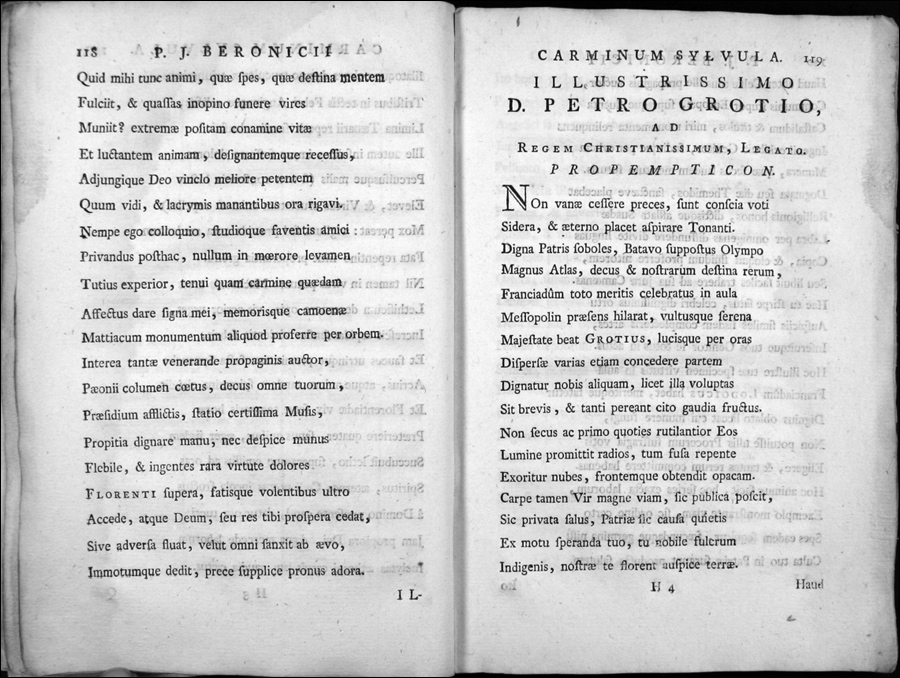 118 P. J. BERONICII
Quid mihi tunc animi, quæ ſpes, quæ deſtina mentem
Fulciit, & quaſſas inopino funere vires
Muniit? extremæ poſitam conamine vitæ
Et luctantem animam, deſignantemque receſſus,
Adjungique Deo vinclo meliore petentem
Quum vidi, & lacrymis manantibus ora rigavi.
Nempe ego colloquio, ſtudioque faventis amici:
Privandus poſthac, nullum in mœrore levamen
Tutius experior, tenui quam carmine quædam
Affectus dare ſigna mei, memorisque camoenæ
Mattiacum monumentum aliquod proferre per orbem.
Interea tantæ venerande propaginis auctor,
Pæonii columen cœtus, decus omne tuorum,
Præſidium afflictis, ſtatio certiſſima Muſis,
Propitia dignare manu, nec deſpice munus
Flebile, & ingentes rara virtute dolores
FLORENTI ſupera, fatisque volentibus ultro
Accede, atque Deum, ſeu res tibi proſpera cedat,
Sive adverſa fluat, velut omni ſanxit ab ævo,
Immotumque dedit, prece ſupplice pronus adora.
IL-
CARMINUM SYLVULA. 119
ILLUSTRISSIMO
D. PETRO GROTIO,
AD
REGEM CHRISTIANISSIMUM, LEGATO.
PROPEMPTICON.
NOn vanæ ceſſere preces, ſunt conſcia voti
Sidera, & æterno placet aſpirare Tonanti.
Digna Patris ſoboles, Batavo ſuppoſtus Olympo
Magnus Atlas, decus & noſtrarum deſtina rerum,
Franciadûm toto meritis celebratus in aula
Meſſopolin præſens hilarat, vultusque ſerena
Majeſtate beat GROTIUS, lucisque per oras
Diſperſæ varias etiam concedere partem
Dignatur nobis aliquam, licet illa voluptas
Sit brevis, & tanti pereant cito gaudia fructus.
Non ſecus ac primo quoties rutilantior Eos
Lumine promittit radios, tum fuſa repente
Exoritur nubes, frontemque obtendit opacam.
Carpe tamen Vir magne viam, ſic publica poſcit,
Sic privata ſalus, Patriæ ſic cauſa quietis
Ex motu ſperanda tuo, tu nobile fulcrum
Indigenis, noſtræ te florent auſpice terræ.
H 4 Haud